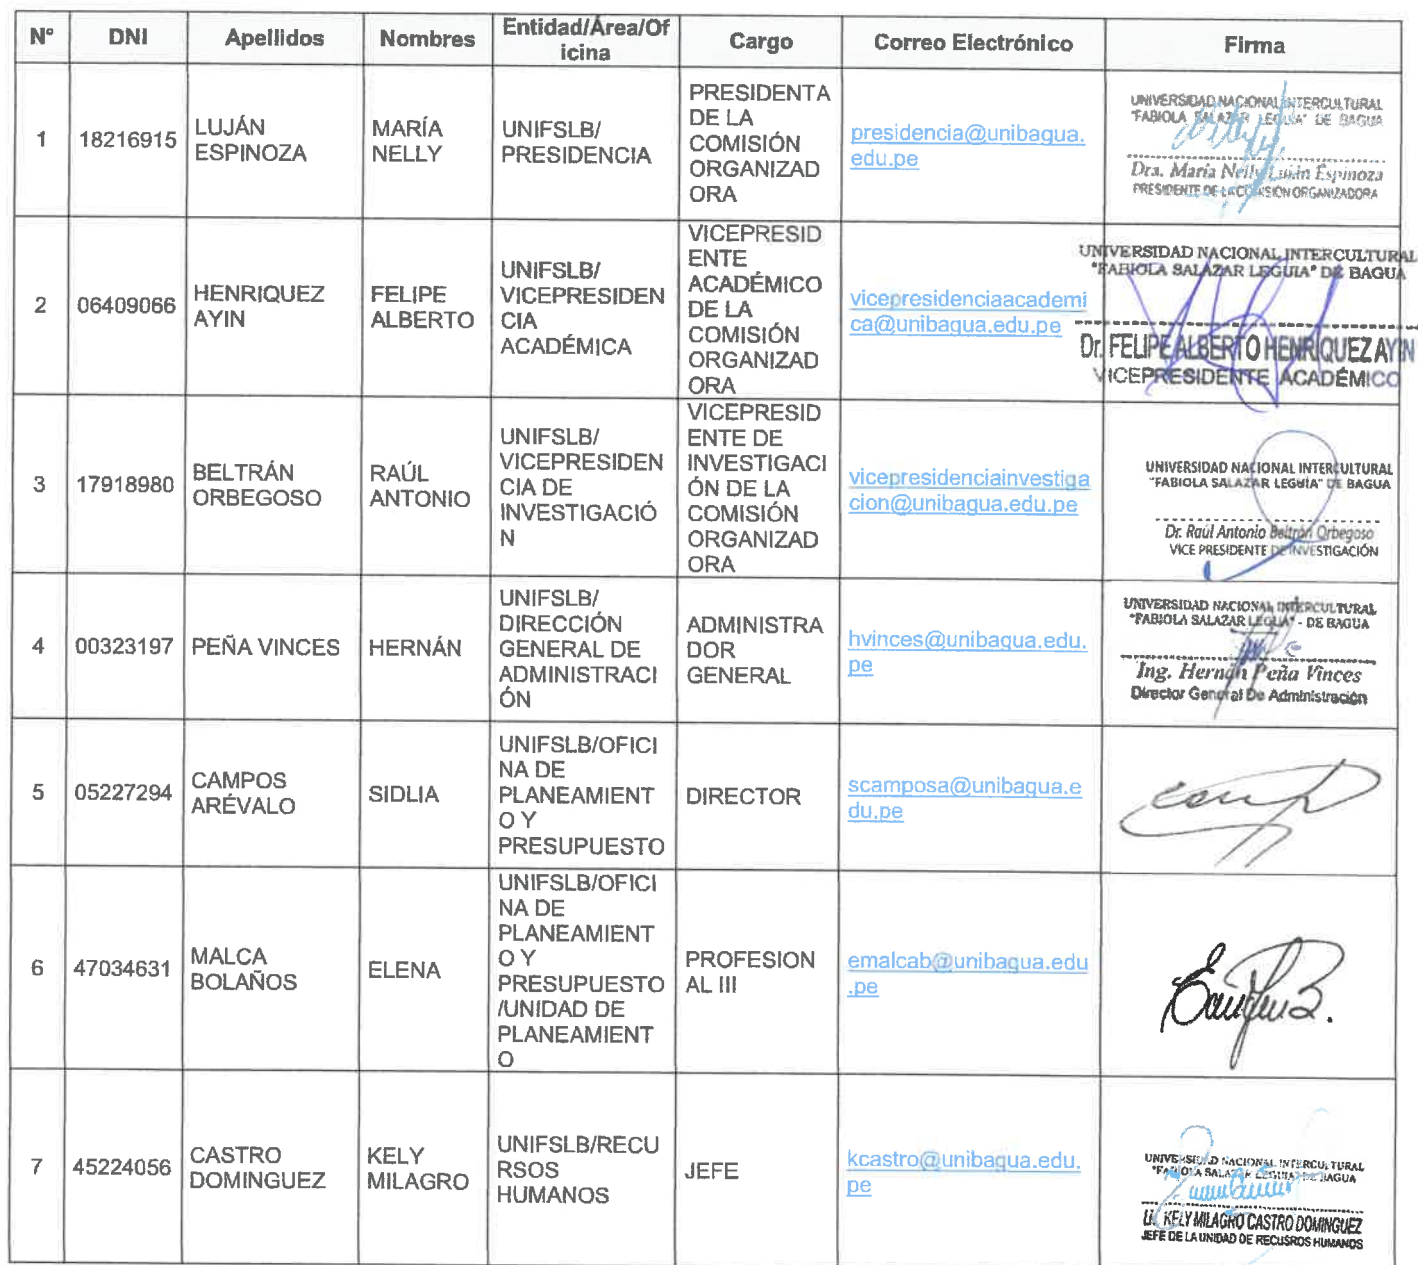 N° DNI Apellidos Nombres Entidad/Área/Of Cargo Correo Electrónico Firma
icina
1 18216915 LUJÁN
ESPINOZA
MARÍA
NELLY
UNIFSLB/
PRESIDENCIA
PRESIDENTA
DE LA
COMISIÓN
ORGANIZAD
ORA
presidencia@unibagua.
edu.pe
UNIVERSIDAD NACIONAL INTERCULTURAL
"FABIOLA SALAZAR LEGUIA" DE BAGUA
Dra. María Nelly Luján Espinoza
PRESIDENTE DE LA COMISIÓN ORGANIZADORA
2 06409066 HENRIQUEZ
AYIN
FELIPE
ALBERTO
UNIFSLB/
VICEPRESIDEN
CIA
ACADÉMICA
VICEPRESID
ENTE
ACADÉMICO
DE LA
COMISIÓN
ORGANIZAD
ORA
vicepresidenciaacademi
ca@unibagua.edu.pe
UNIVERSIDAD NACIONAL INTERCULTURAL
"FABIOLA SALAZAR LEGUIA" DE BAGUA
Dr. FELIPE ALBERTO HENRIQUEZ AYIN
VICEPRESIDENTE ACADÉMICO
3 17918980 BELTRÁN
ORBEGOSO
RAÚL
ANTONIO
UNIFSLB/
VICEPRESIDEN
CIA DE
INVESTIGACIÓ
N
VICEPRESID
ENTE DE
INVESTIGACI
ÓN DE LA
COMISIÓN
ORGANIZAD
ORA
vicepresidenciainvestiga
cion@unibagua.edu.pe
UNIVERSIDAD NACIONAL INTERCULTURAL
"FABIOLA SALAZAR LEGUÍA" DE BAGUA
Dr. Raúl Antonio Beltrán Orbegoso
VICE PRESIDENTE DE INVESTIGACIÓN
4 00323197 PEÑA VINCES HERNÁN
UNIFSLB/
DIRECCIÓN
GENERAL DE
ADMINISTRACI
ÓN
ADMINISTRA
DOR
GENERAL
hvinces@unibagua.edu.
pe
UNIVERSIDAD NACIONAL INTERCULTURAL
"FABIOLA SALAZAR LEGUIA" - DE BAGUA
Ing. Hernán Peña Vinces
Director General De Administración
5 05227294 CAMPOS
ARÉVALO
SIDLIA
UNIFSLB/OFICI
NA DE
PLANEAMIENT
O Y
PRESUPUESTO
DIRECTOR
scamposa@unibagua.e
du.pe
6 47034631 MALCA
BOLAÑOS
ELENA
UNIFSLB/OFICI
NA DE
PLANEAMIENT
O Y
PRESUPUESTO
/UNIDAD DE
PLANEAMIENT
O
PROFESION
AL III
emalcab@unibagua.edu
.pe
7 45224056 CASTRO
DOMINGUEZ
KELY
MILAGRO
UNIFSLB/RECU
RSOS
HUMANOS
JEFE
kcastro@unibagua.edu.
pe
UNIVERSIDAD NACIONAL INTERCULTURAL
"FABIOLA SALAZAR LEGUIA" DE BAGUA
KELY MILAGRO CASTRO DOMINGUEZ
JEFE DE LA UNIDAD DE RECUSROS HUMANOS